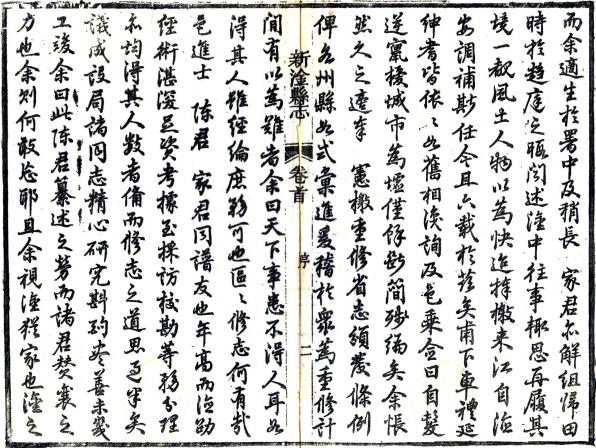 而余適生於署中及稍長　家君亦解組歸田
時於趨庭之暇閒述淦中往事輙思再履其
境一觀風土人物以為快迨捧檄來江自德
安調補斯任今且六載於茲矣甫下車禮延
紳耆皆依〻如舊相識詢及邑乘僉曰自髮
逆竄擾城市為墟僅餘斷簡殘編矣余悵
然久之適奉　憲檄重修省志頒發條例
俾各州縣如式彙進爰稽於衆為重修計
新淦縣志　卷首　序　二
間有以為難者余曰天下事患不得人耳如
得其人雖經綸庶務可也區〻修志何有哉
邑進士　陳君　家君同譜友也年高而德劭
經術湛深足資考據至採訪校勘等務分理
亦均得其人數者備而修志之道思過半矣
議成設局諸同志精心研究斟酌盡善未幾
工竣余曰此陳君纂述之勞而諸君贊襄之
力也余則何敢忘耶且余視淦猶家也淦之